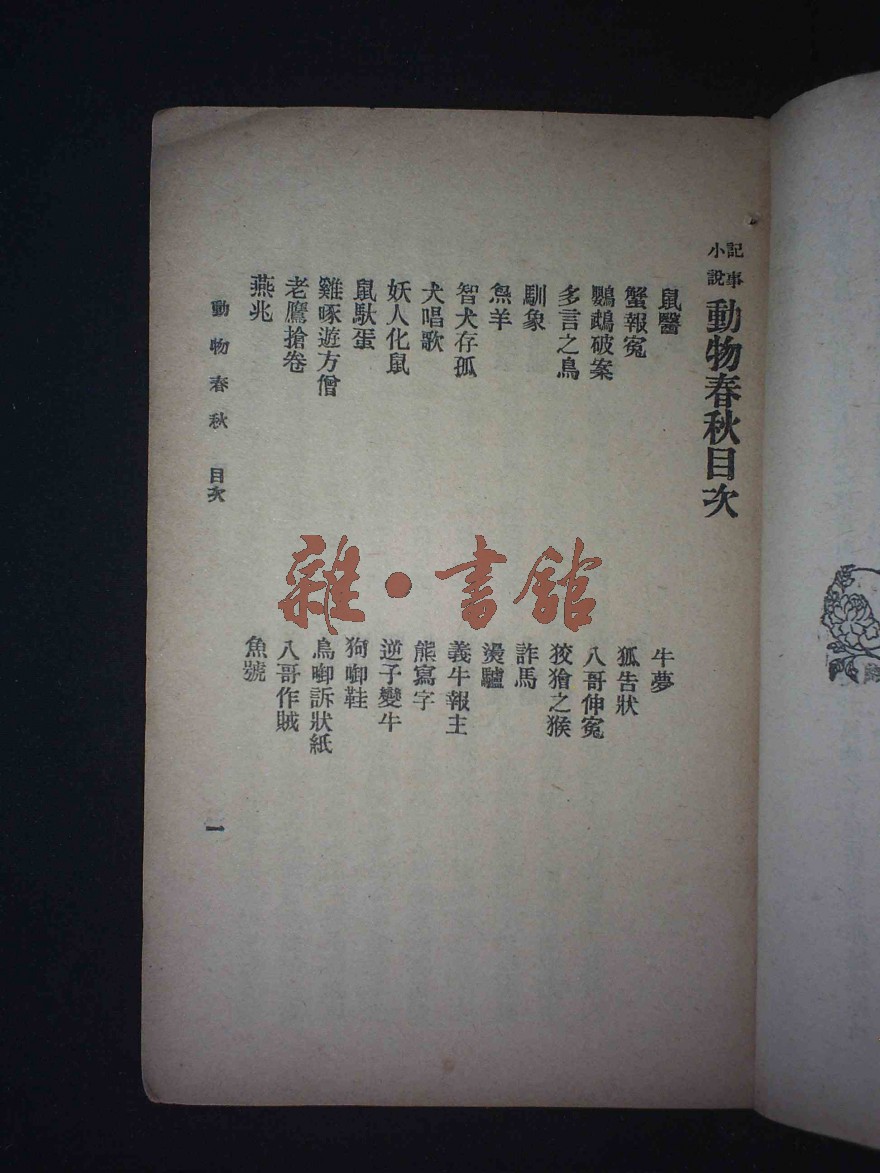 記事小說 動物春秋目次
鼠醫
牛夢
蟹報冤
狐告狀
鸚鵡破案
八哥伸冤
多言之鳥
狡獪之猴
馴象
詐馬
魚羊
燙驢
智犬存孤
義牛報主
犬唱歌
熊寫字
妖人化鼠
逆子變牛
鼠馱蛋
狗啣鞋
雞啄遊方僧
鳥啣訴狀紙
老鷹搶卷
八哥作賊
燕兆
魚號
動物春秋 目次
一
雜·書館